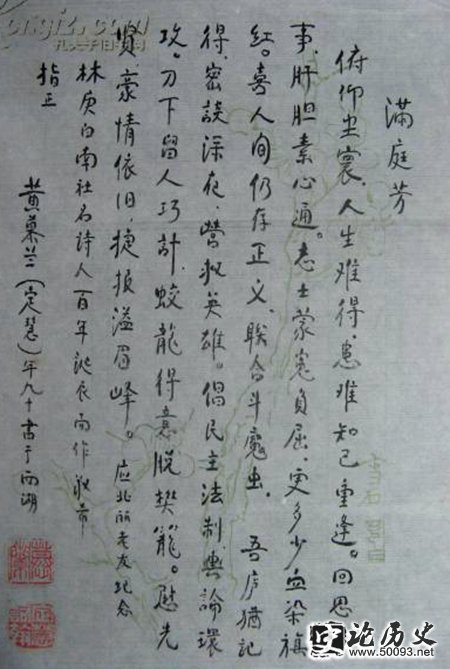 满庭芳
俯仰尘寰、人生难得、患难知己重逢。回思
事、肝胆素心通。志士蒙冤负屈、更多少血染旗
红。喜人间仍存正义、联合斗魔虫。 吾庐犹记
得、密谈深夜、营救英雄。倡民主法制、舆论环
攻。刀下留人巧计、蛟龙得意脱樊笼。慰先
贤、豪情依旧、捷报溢眉峰。 应北丽老友纪念
林庚白南社名诗人百年诞辰而作敬
指正
黄慕兰(定慧)年九十书于西湖
论历史
www.50093.net